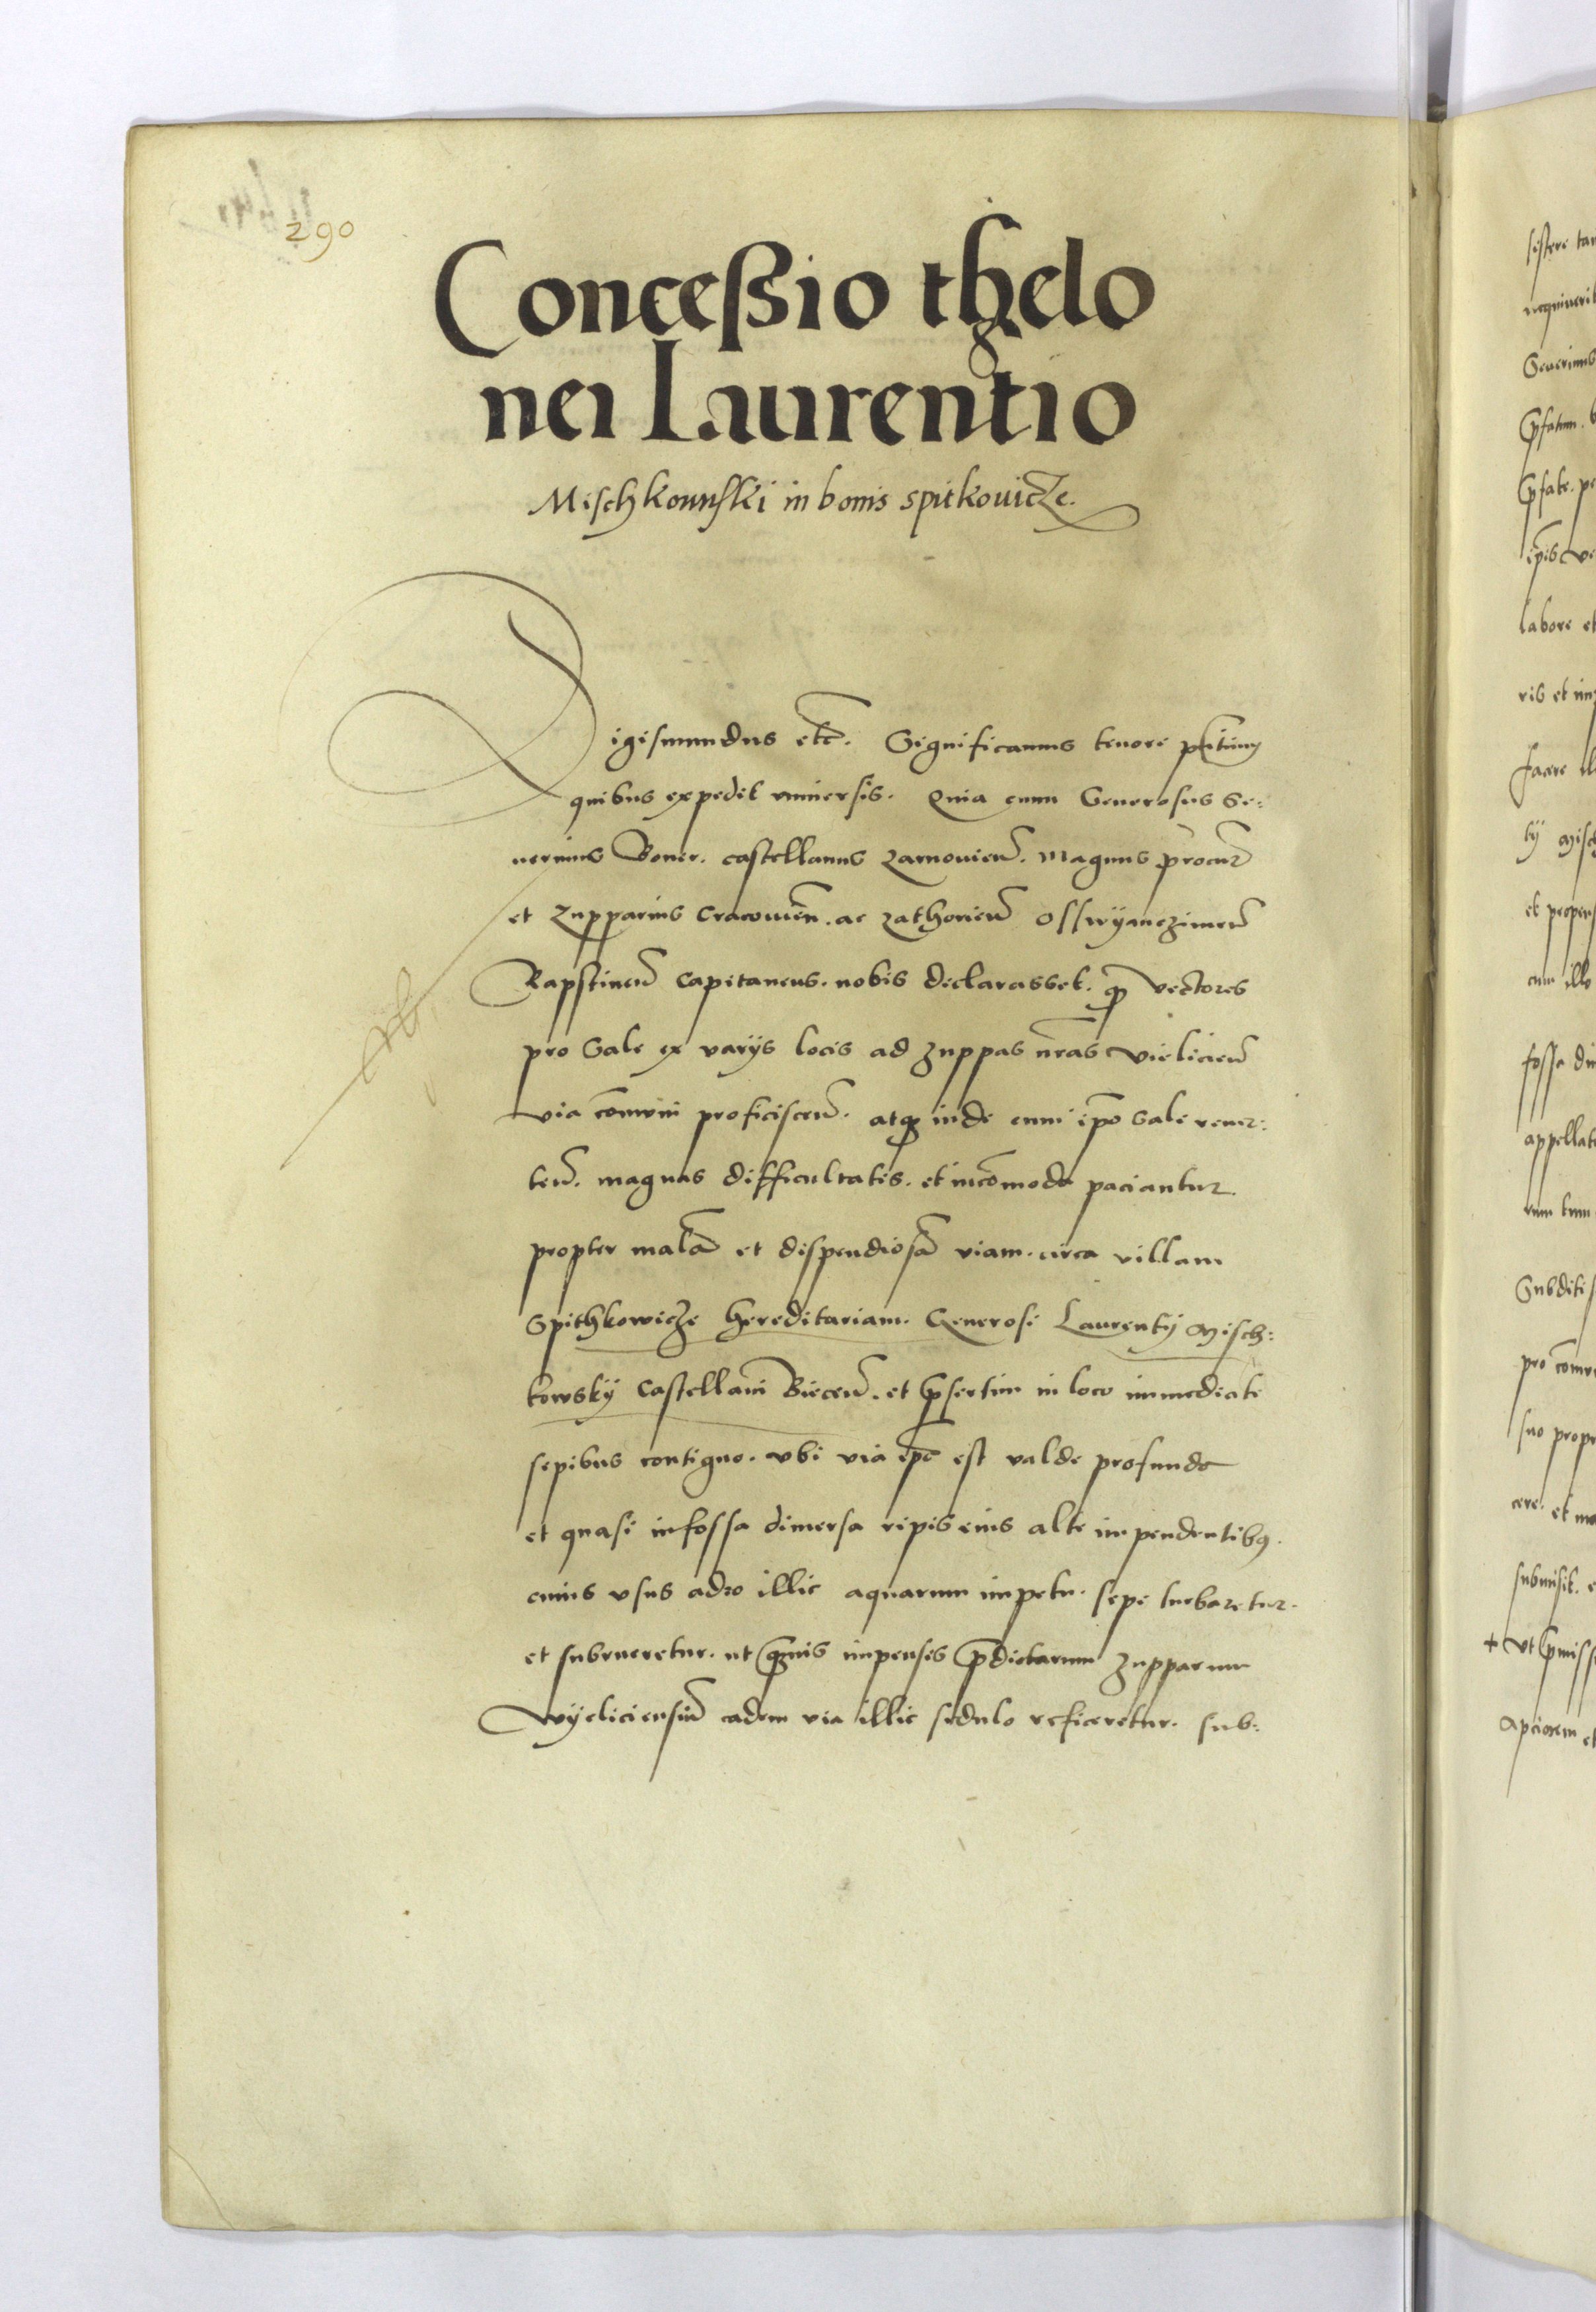 290
Conceßio thelo
nei Laurentio
Mischkowski in bonis spitkovicze.
Sigismundus etc. Significamus tenore pñtium
quibus expedit vniuersis. Quia cum Generosus Se:
uerinus Boner. castellanus zarnouien̄. Magnus procur̄
et Zupparius Cracouien̄. ac zathorien̄ Osswyanczimen̄
Rapstinen̄ Capitaneus. nobis declarasset. ꝙ vectores
pro Sale ex varijs locis ad zuppas nr̄as vielicien̄
via cōmuni proficiscen̄. atqꝫ inde cum ip̄o Sale reuer:
ten̄. magnas difficultates. et incōmoda paciantur
propter malā et dispendiosā viam. circa villam
Spithkowicze hereditariam. Generosi Laurentij Misch:
kowskij Castellani Biecen̄. et p̄sertim in loco immediate
sepibus contiguo. vbi via ip̄a est valde profunda
et quasi in fossa dimersa ripis eius alte impendentibꝰ.
cuius vsus adeo illic aquarum impetu. sepe turbaretur.
et subrueretur. ut q̄uis impensis p̄dictarum zupparum
Wyeliciensiū eadem via illic sedulo reficeretur. sub:
sistere
Seuerinus
p̄fatum.
p̄fate.
ip̄is
labore et
ris et
facere
tij Misch
et propens
cum illo
fossa
appellat
rum tum
Subditi
pro cōmu
suo propr
cere. et
submisit.
+ Vt p̄miss
apciorem et